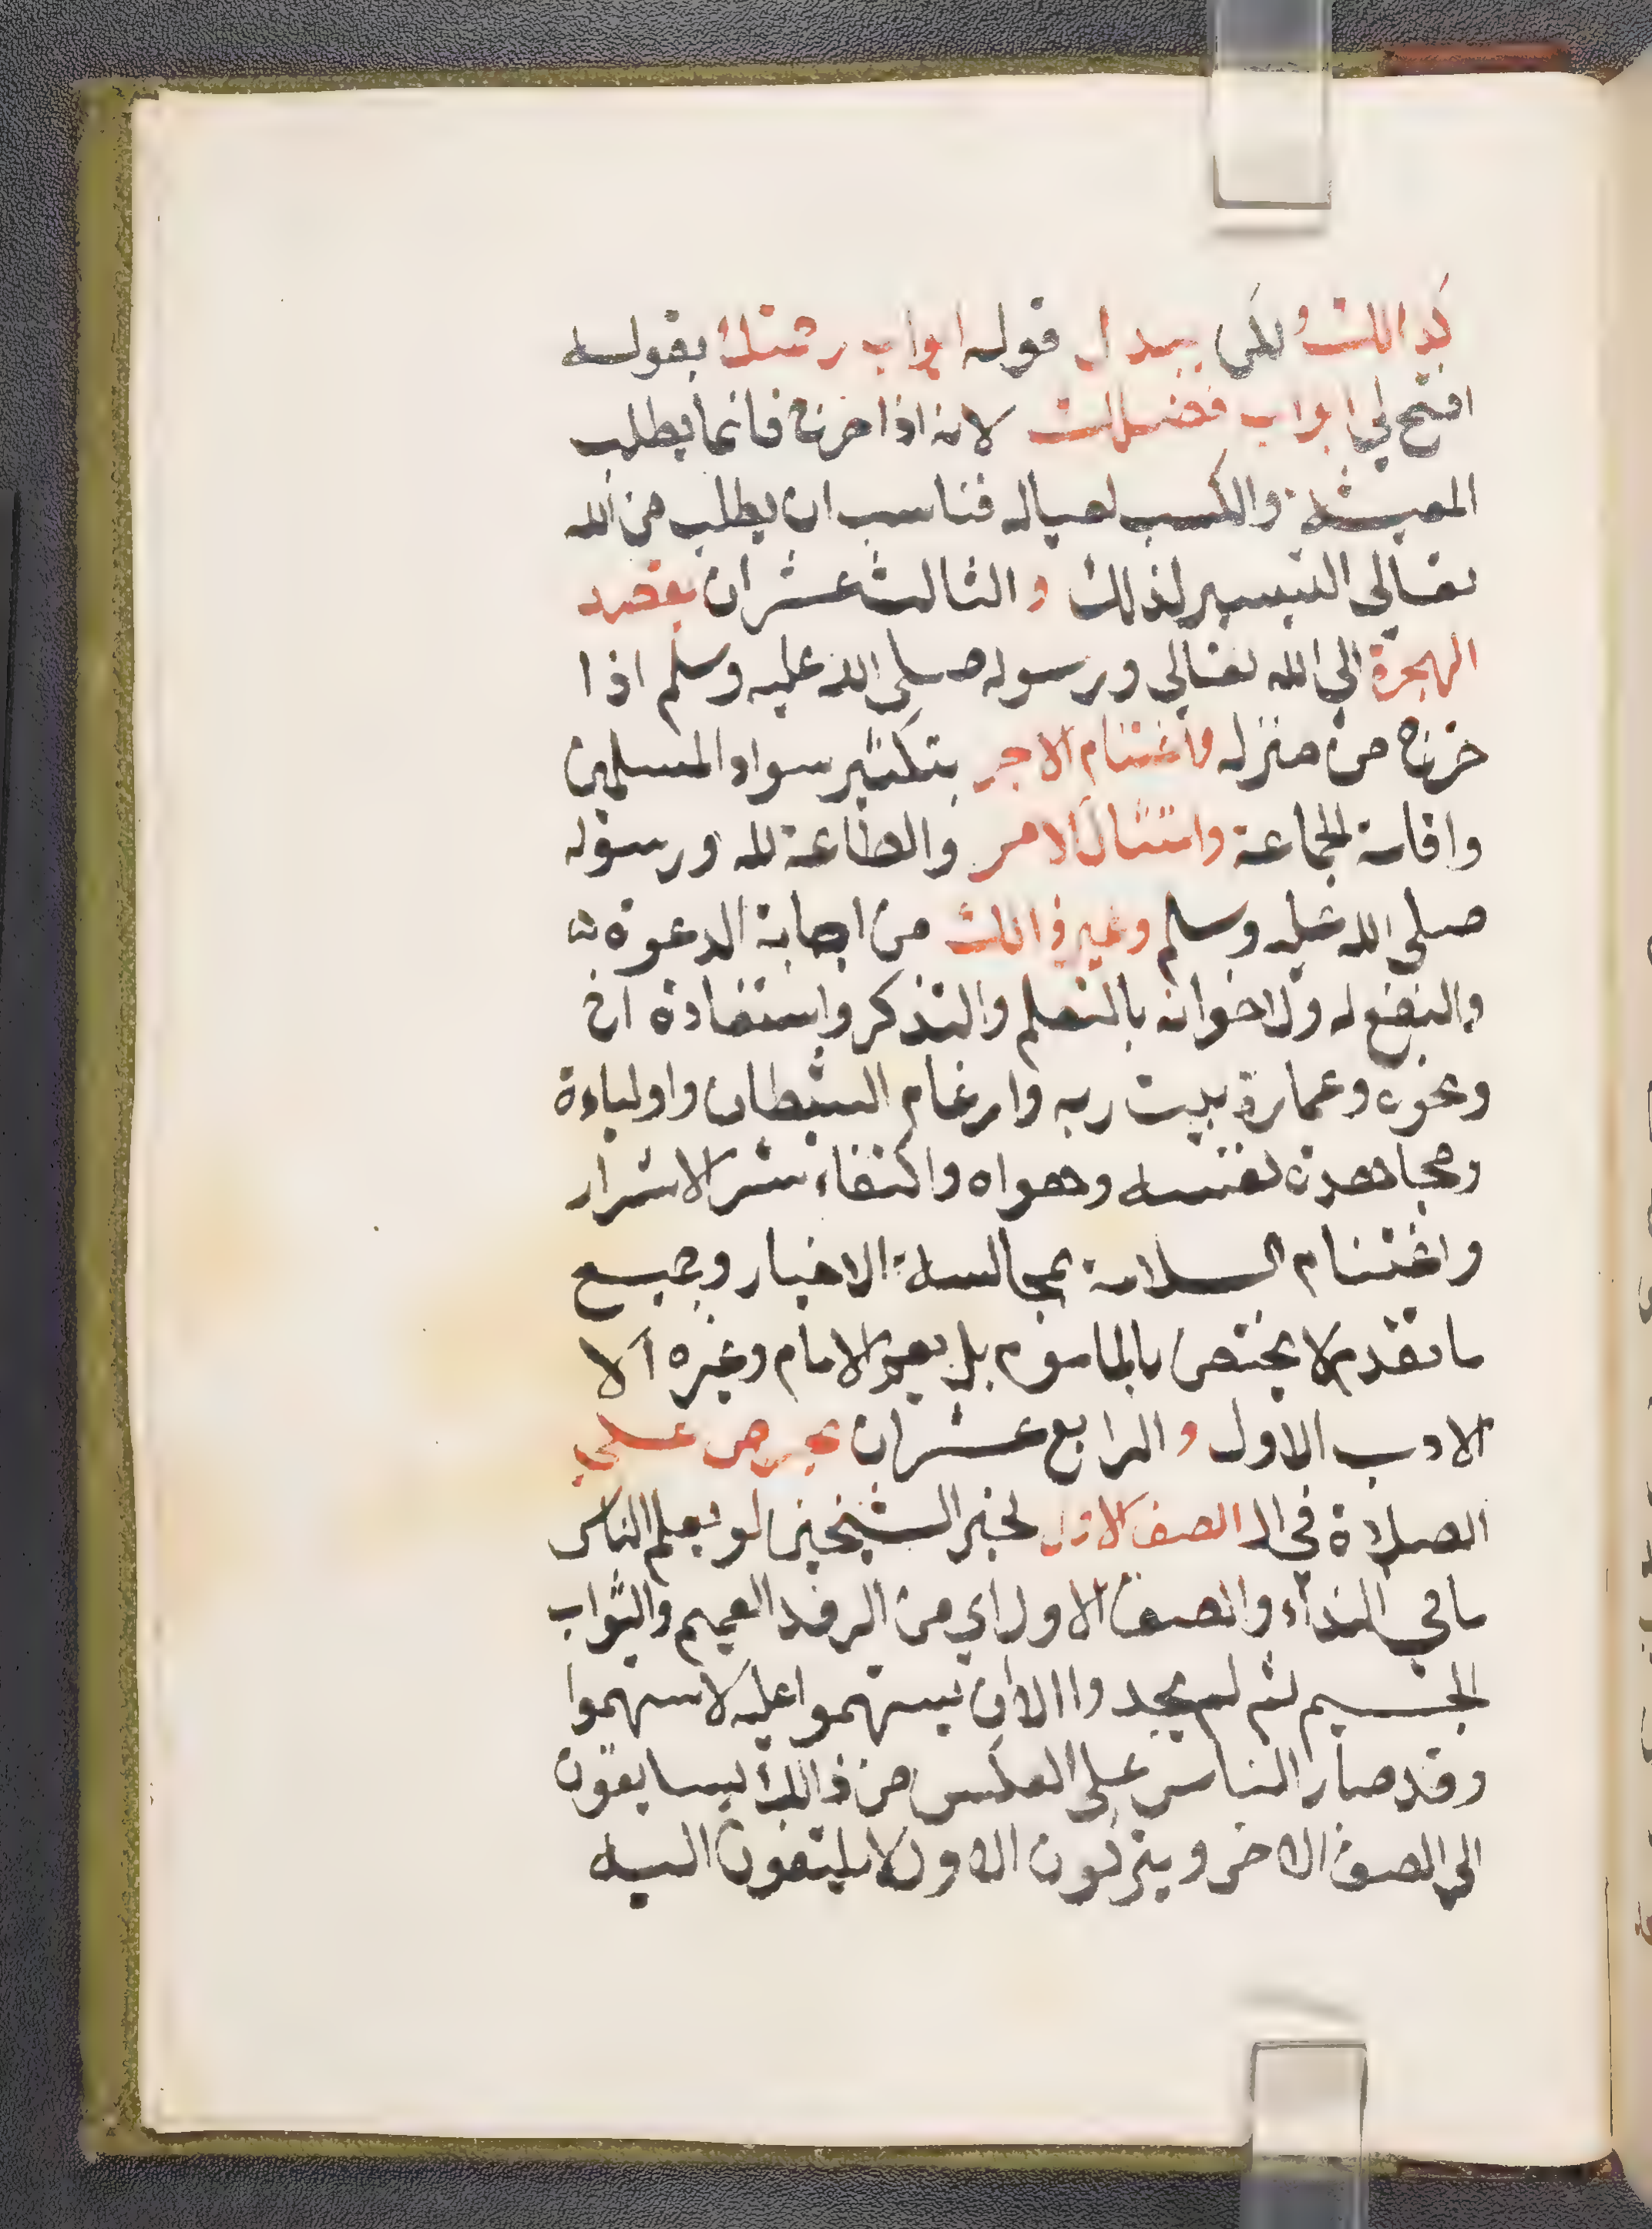 كذالك لكن يبدل قوله ابواب رحمتك بقوله
افتح لي ابواب فضلك لانه اذا خرج فانما يطلب
المعيشة والكسب لعياله فناسب ان يطلب من الله
تعالي التيسير لذلك والثالث عشر ان يقصد
الهجرة الي الله تعالي ورسوله صلي الله عليه وسلم اذا
خرج من منزله واغتنام الاجر بتكثير سواد المسلمين
واقامة الجماعة وامتثال الامر والطاعة لله ورسوله
صلي الله عليه وسلم وغير ذالك من اجابة الدعوة
والنفع له ولاخوانه بالتعلم والتذكر واستفادة اخ
ونحوه وعمارة بيت ربه وارغام الشيطان واولياءة
ومجاهدة نفسه وهواه واكتفاء شر الاشرار
واغتنام السلامة بمجالسة الاخيار وجميع
ما تقدم لا يختص بالماموم بل يعم الامام وغيره الا
الادب الاول والرابع عشر ان يحرص علي
الصلاة في ال الصف الاول لخبر الشيخين لو يعلم الناس
ما في النداء والصف الاول اي من الرفد العميم والثواب
الجسيم ثم لم يجدوا الا ان يستهموا عليه لاستهموا
وقد صار الناس علي العكس من ذالك يسابقون
الي الصف الاخر ويتركون الاول لا يلتفون اليه